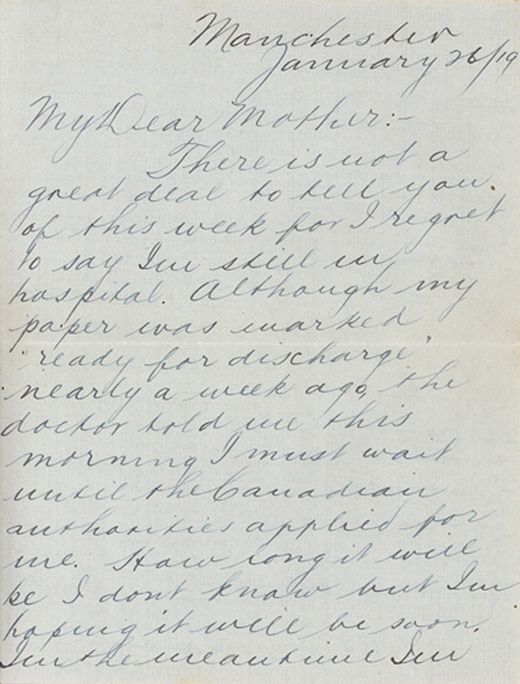 Manchester
January 26/19
My Dear Mother:-
There is not a
great deal to tell you
of this week for I regret
to say Im still in
hospital. Although my
paper was marked
"ready for discharge"
nearly a week ago, the
doctor told me this
morning I must wait
until the Canadian
authorities applied for
me. How long it will
be I dont know but Im
hoping it will be soon.
In the meantime Im